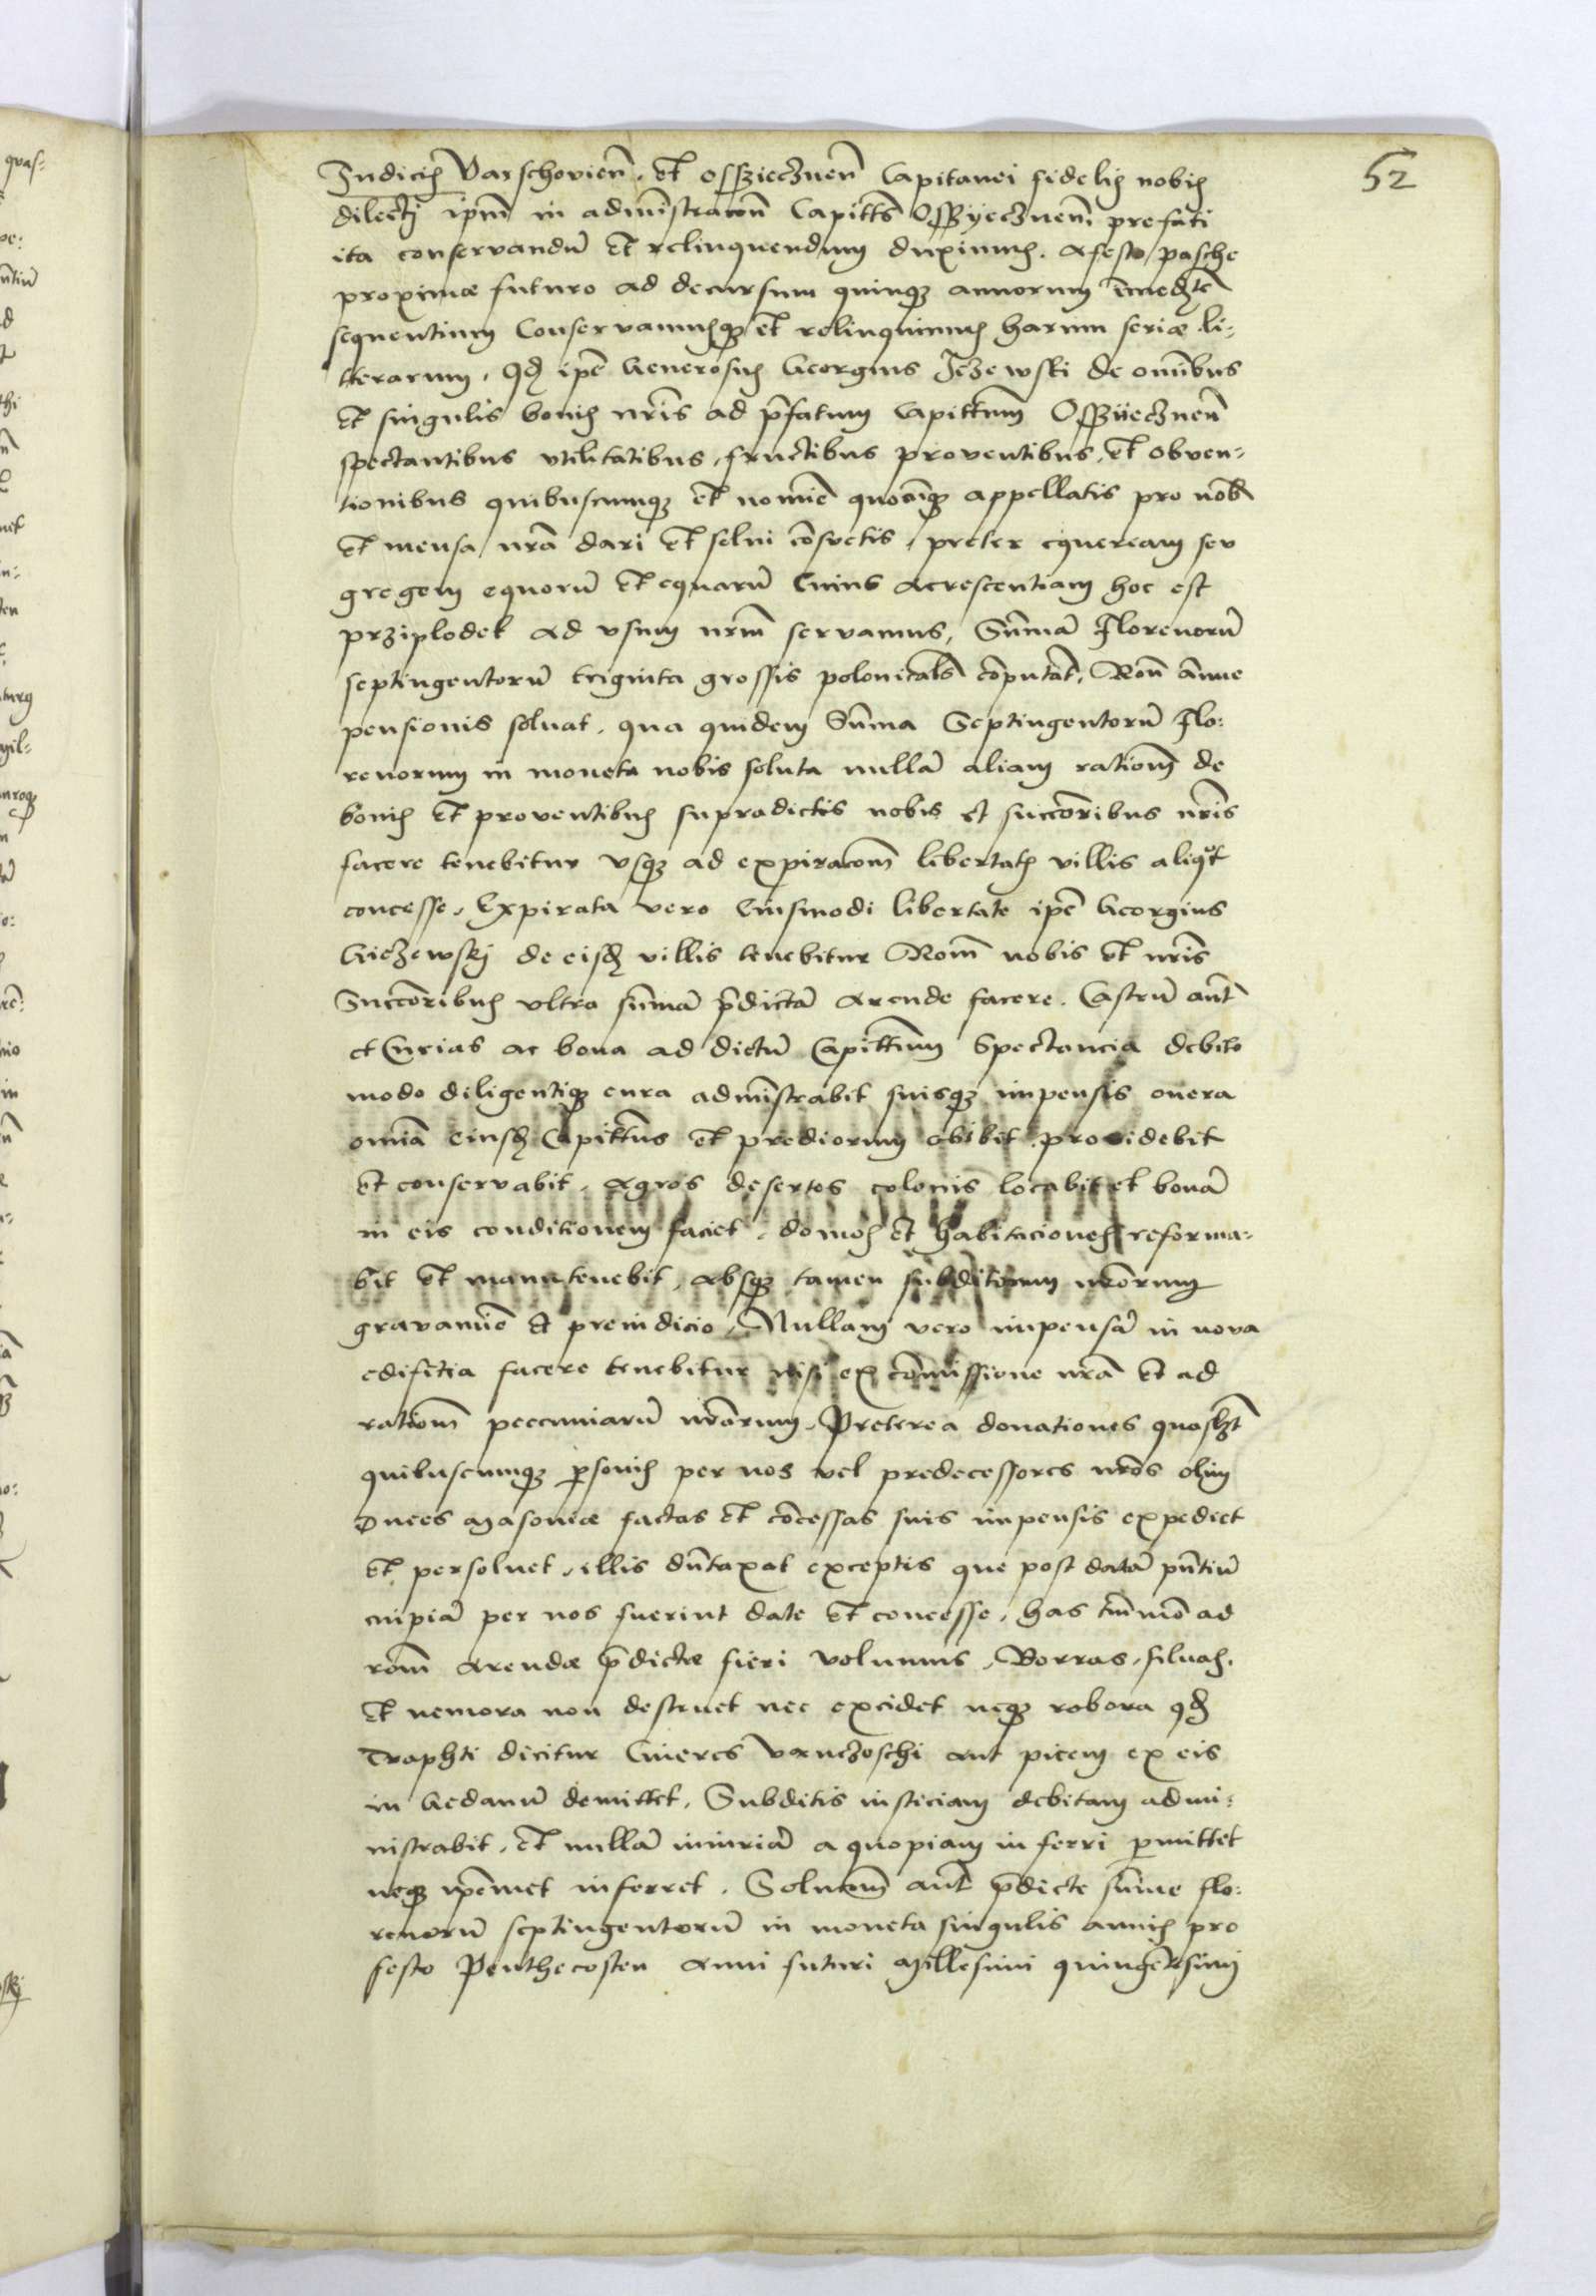 52
Iudicis Varschovien̄. et Osszieczneñ Capitanei fidelis nobis
dilecti ip̄m in administracoñ Capittūs Osszyecznen̄ prefati
ita conservandū et relinquendum duximus. A festo pasche
proximæ futuro ad decursum quinqȝ annorum im̄ed̄te
sequentium Conservamusqȝ et relinquimus harum serie li-
tterarum. Qd ip̄e Generosus Georgius Jezewski de omībus
et singulis bonis nr̄is ad p̄fatum Capittum Osszieczneñ
spectantibus vtilitatibus, fructibus proventibus, et obven-
tionibus quibuscumqȝ et nomīe quocūqȝ appellatis pro nob̄
et mensa nr̄a dari et solui cōsuetis, preter equeream seu
gregem equorū et equarū Cuius Acrescentiam hoc est
prziplodek ad vsum nr̄m servamus, Sum̄ā Florenorū
septingentorū triginta grossis polonicalb̄ cōputat̄, Roñ annue
pensionis soluat. qua quidem Sum̄a Septingentorū Flo-
renorum in moneta nobis soluta nullā aliam rationē de
bonis et proventibus supradictis nobis et succoribus nr̄is
facere tenebitur vsqȝ ad expiracoem libertatis villis aliqt
concesse. Expirata vero Eiusmodi libertate ip̄e Georgius
Giezewskj de eisd villis tenebitur Rom̄ nobis et nr̄is
Succoribus vltra sum̄ā p̄dictā Arende facere. Castrū aut̄
et Curias ac bona ad dictū Capittum Spectancia debito
modo diligentiqȝ cura administrabit suisqȝ impensis onera
om̄ia eiusd Capittūs et prediorum obibit providebit
et conservabit. Agros desertos colonis locabit et bonā
in eis conditionem faciet. domos et habitaciones reforma-
bit et manutenebit, Absqȝ tamen subditorum nr̄orum
gravamīe et preiudicio, Nullam vero impensā in nova
edificia facere tenebitur nisi ex com̄issione nr̄a et ad
rationē peccuniarū nr̄arum. Preterea donationes quaslt
quibuscumqȝ p̄sonis per nos vel predecessores nr̄os olim
Duces Masoviæ factas et cōcessas suis impensis expediet
et persoluet, illis dūtaxat exceptis que post datā pn̄tiū
cuipiā per nos fuerint date et concesse, has tm̄mō ad
rom̄ Arendæ p̄dictæ fieri volumus, Borras, siluas,
et nemora non destruet nec excidet neqȝ robora qd
Traphti dicitur Cineres vanczoschi aut picem ex eis
in Gedanū demittet. Subditis iusticiam debitam admi-
nistrabit, et nullā iniuriā a quopiam inferri p̄mittet
neqȝ ip̄emet inferret. Solucom̄ aut̄ p̄dicte sum̄e flo-
renorū septingentorū in moneta singulis annis pro
festo Penthecosten anni futuri Millesimi quingētesimi